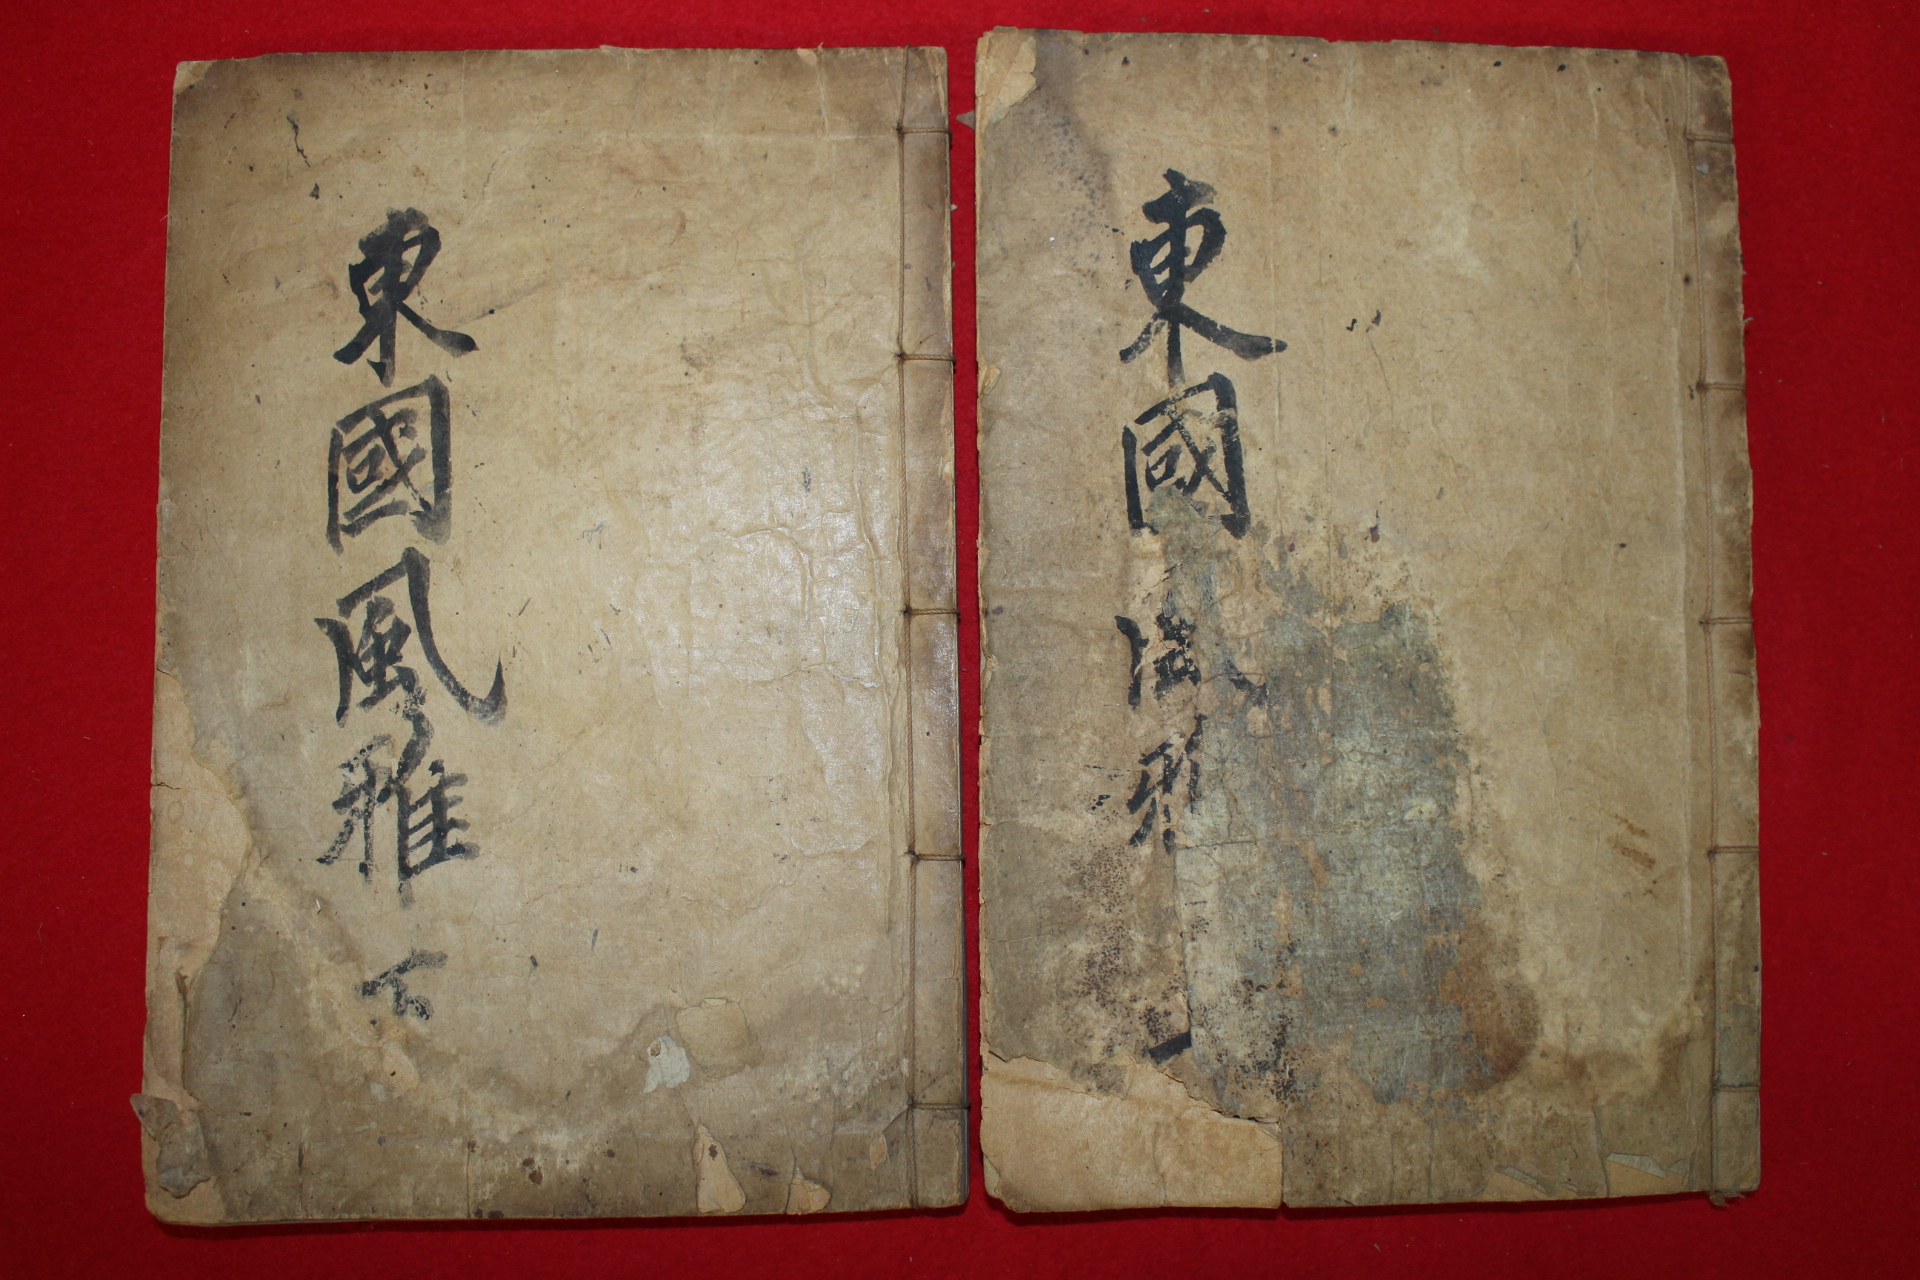 東國風雅
東國風雅 下